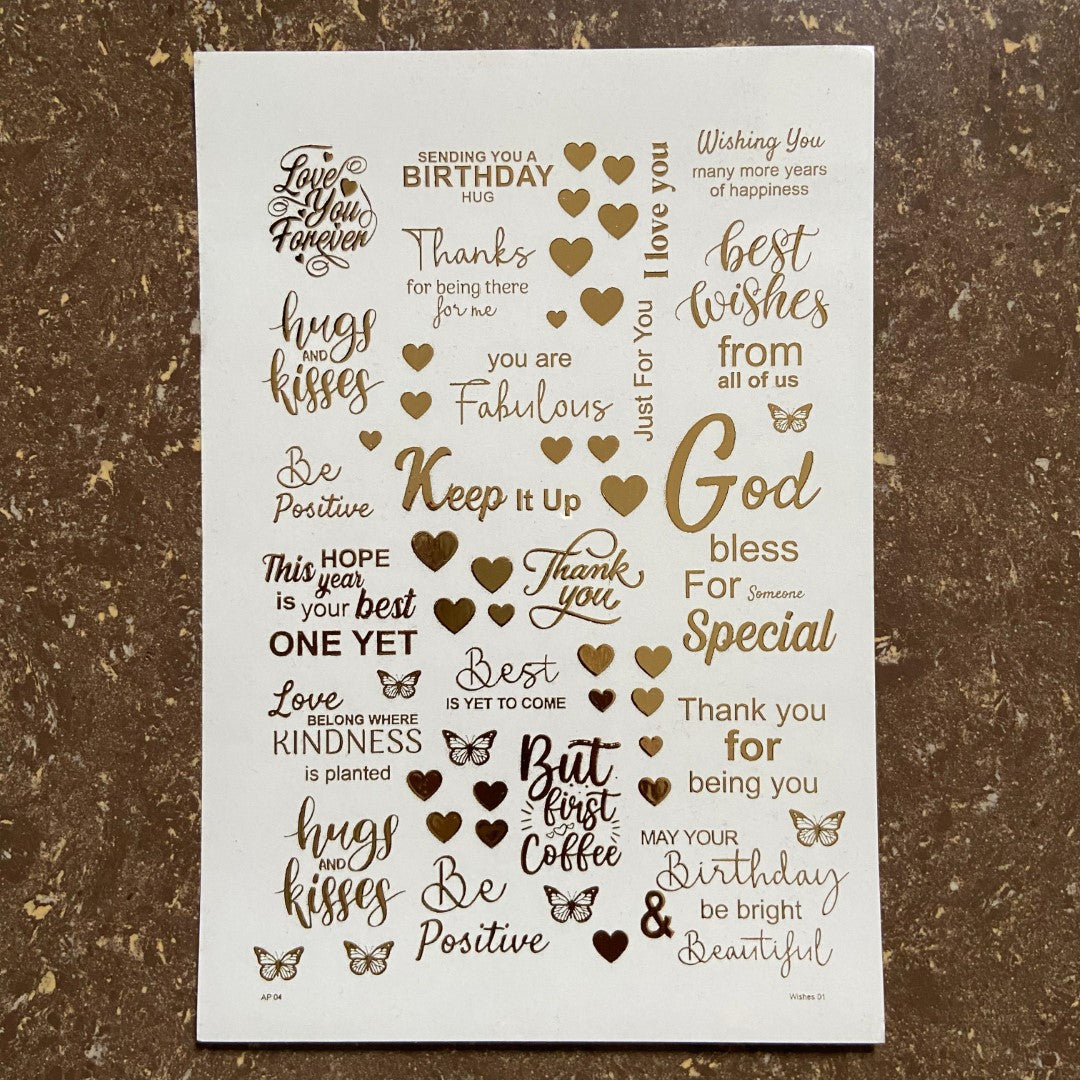 Love
You
Forever
SENDING YOU A
BIRTHDAY
HUG
I love you
Wishing You
many more years
of happiness
Thanks
for being there
for me
best
wishes
from
all of us
hugs
AND
kisses
you are
Fabulous
Just For You
Be
Positive
Keep It Up
God
bless
For Someone
Special
This HOPE
year
is your best
ONE YET
Thank
you
Love
BELONG WHERE
KINDNESS
is planted
Best
IS YET TO COME
Thank you
for
being you
But
first
Coffee
hugs
AND
kisses
Be
Positive
MAY YOUR
Birthday
be bright
&
Beautiful
AP 04
Wishes 01